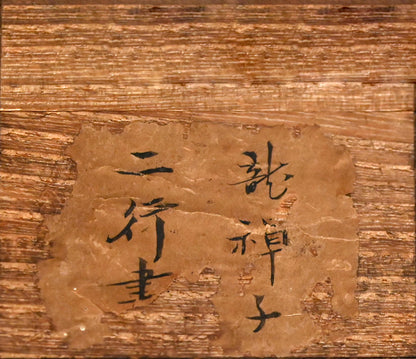 龍禅子
二行書